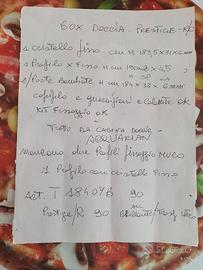 BOX DOCCIA PRESTIGE
1 cristallo fisso cm H 183,5x31x6mm
1 Profilo x Fisso H cm 190x3x4,5
2 Porte Bombate H cm 184 x 38 x 6mm
coprifilo e guarnizioni e calamite OK
KIT Fissaggio OK
TIPO DA CABINA DOCCIA
AQUARIAN
mancano due Profili fissaggio MURO
1 Profilo con cristallo fisso
Art. T 1840YB 90
Prestige/R 90